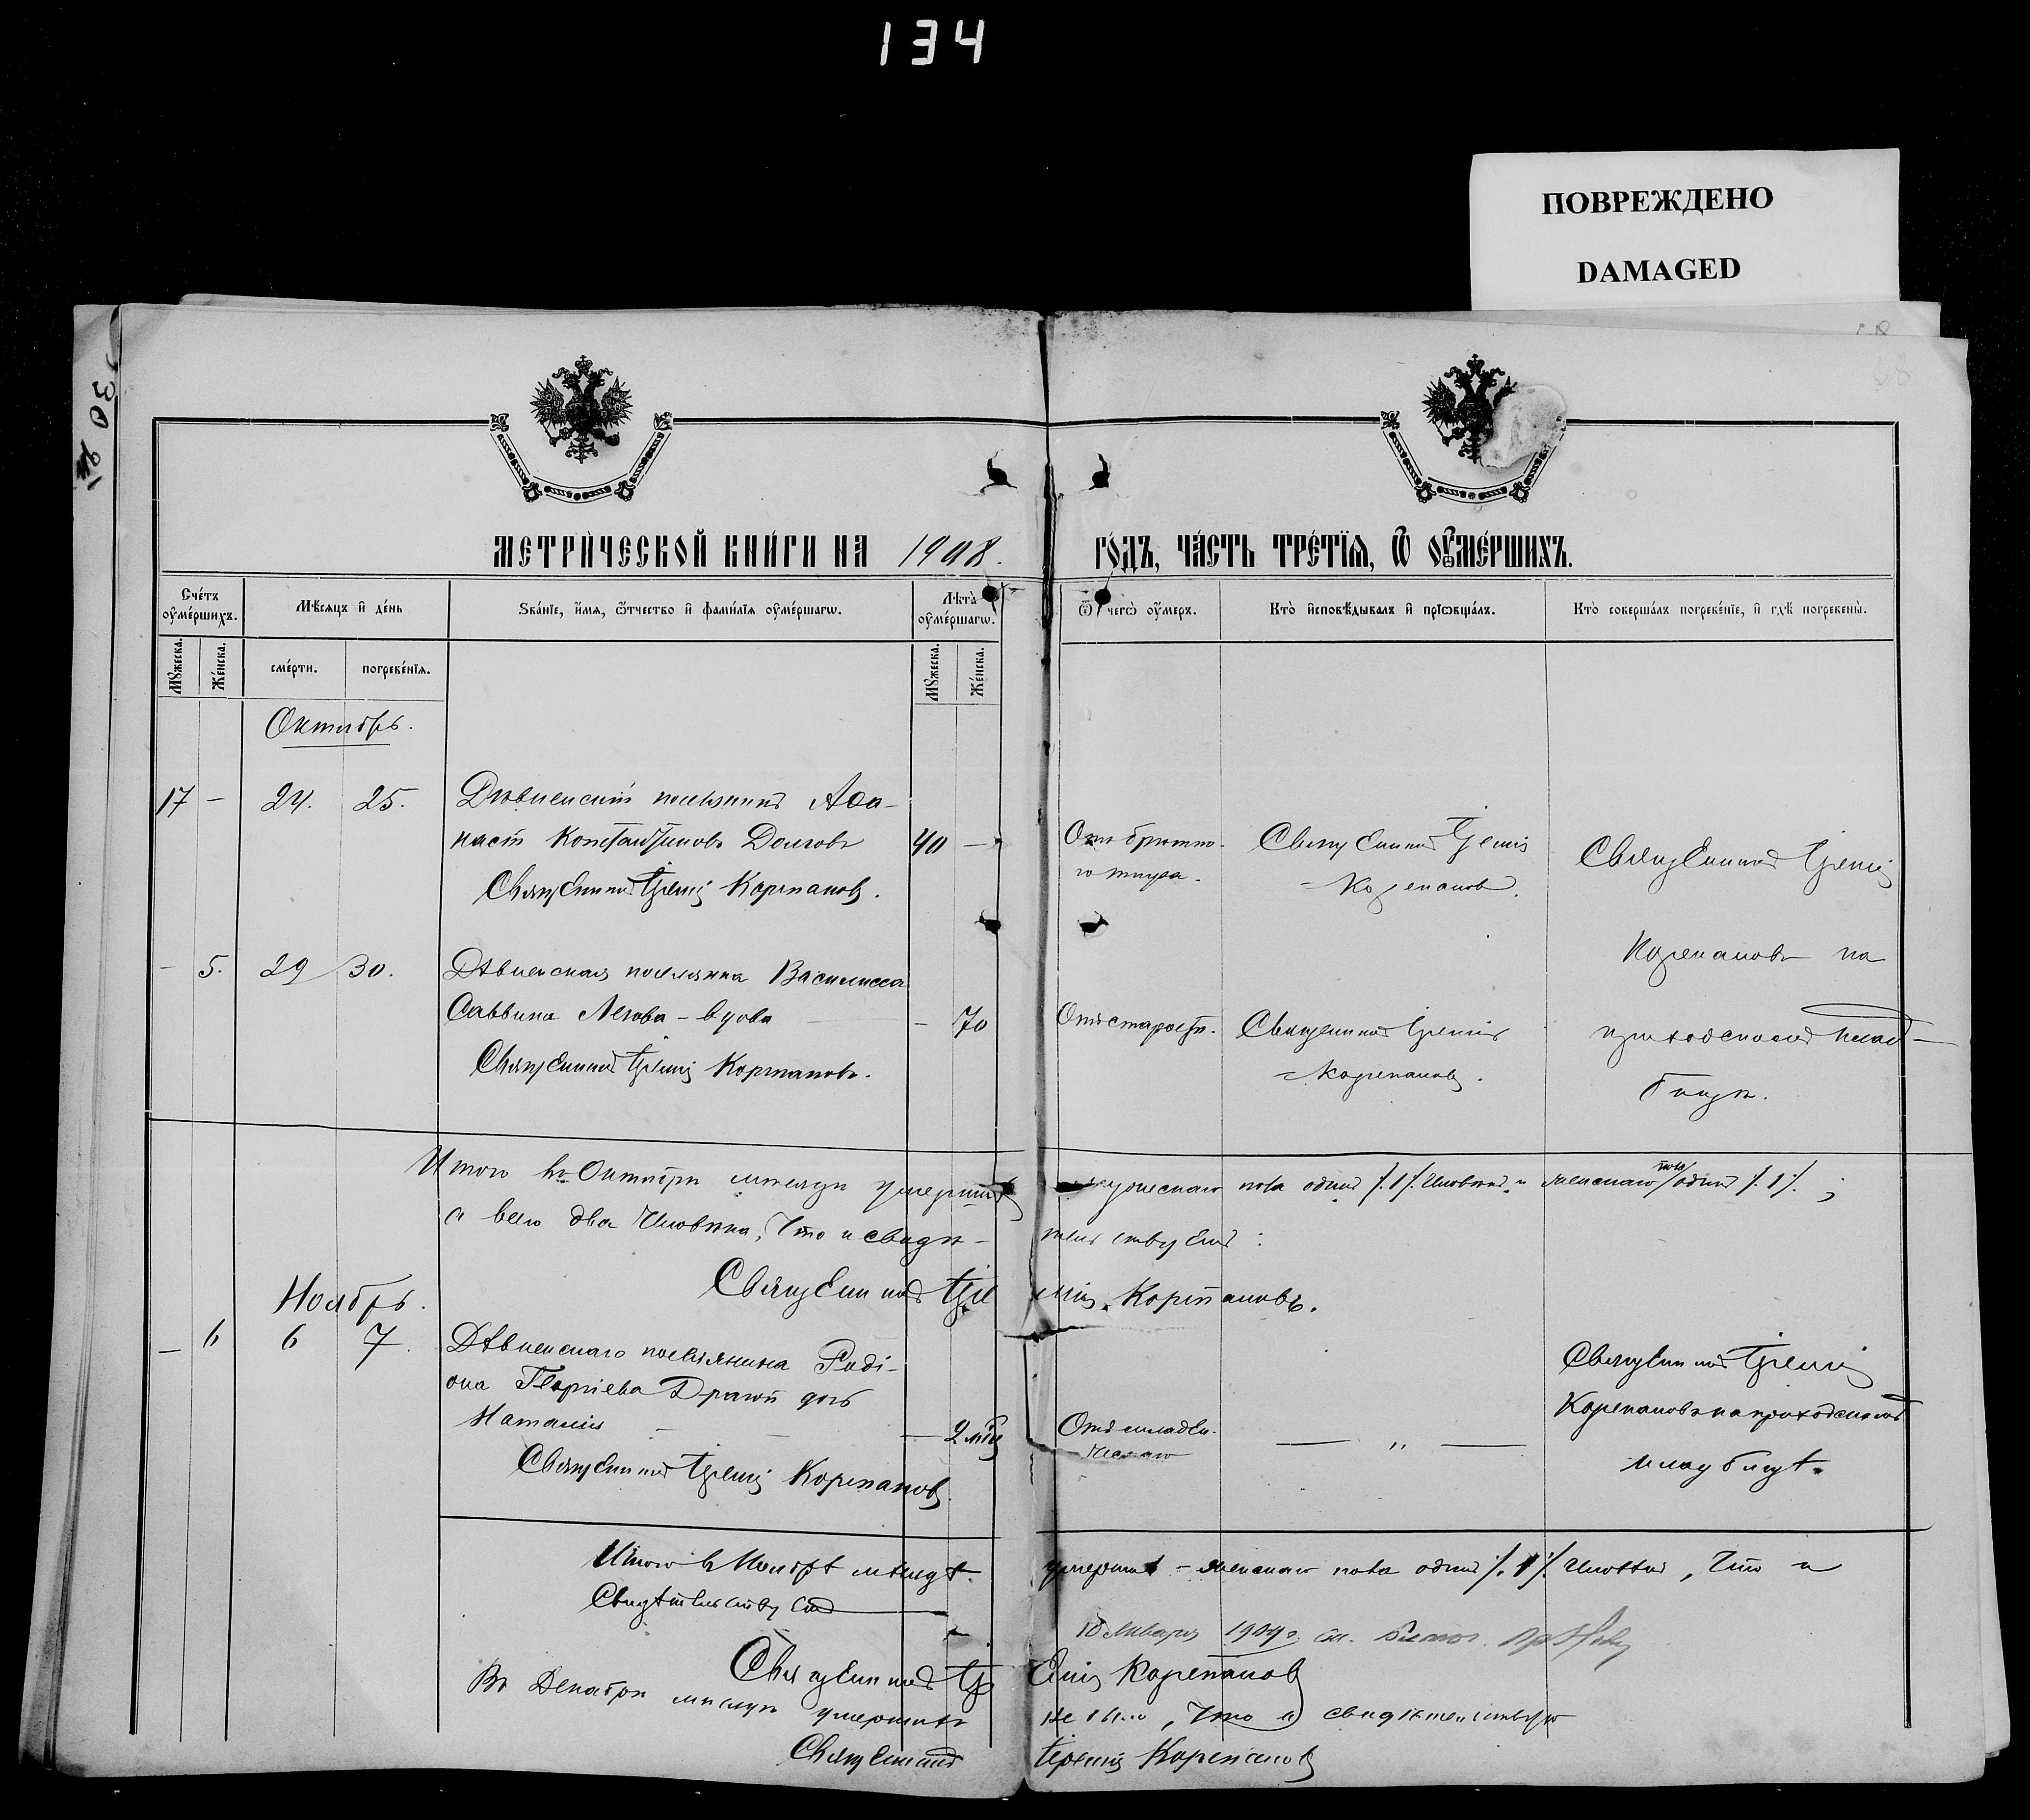 134
ПОВРЕЖДЕНО
DAMAGED
МЕТРИЧЕСКОЙ КНИГИ НА 1908. ГОДЪ, ЧАСТЬ ТРЕТІѦ, Ѿ ОУМЕРШИХЪ.
Счетъ оумершихъ.
Мѣсяцъ и день
Званіе, имя, ѿчество и фамилія оумершагѡ.
Лѣта оумершагѡ.
Ѿ чегѡ оумеръ.
Кто исповѣдывалъ и пріѡбщалъ.
Кто совершалъ погребеніе, и гдѣ погребены.
Мужеска.
Женска.
смерти.
погребенія.
Мужеска.
Женска.
Октябрь.
17 – 24. 25.
поселянинъ Афа-
насій Константиновъ Долговъ 40 –
Священникъ Іеремія Корепановъ.
Отъ брюшно-
го тифа.
Священникъ Іеремія
Корепановъ.
Священникъ Іеремія
Корепановъ на
приходскомъ клад-
бищѣ.
– 5. 29 30.
поселянка Василисса
Саввина – вдова – 70
Священникъ Іеремія Корепановъ.
Отъ старости.
Священникъ Іеремія
Корепановъ.
Итого въ Октябрѣ мѣсяцѣ умершихъ мужескаго пола одинъ /.1/. человѣкъ и женскаго пола/одинъ /.1/. ;
а всего два человѣка, Что и свидѣ- тельствуемъ :
Священникъ Іеремія Корепановъ.
Ноябрь.
– 6 6 7.
поселянина Роді-
она Георгіева дочь
Наталія – 2 мѣс
Священникъ Іеремія Корепановъ
Отъ младен-
ческаго
— „ —
Священникъ Іеремія
Корепановъ на приходскомъ
кладбищѣ.
Итого въ Ноябрѣ мѣсяцѣ умершихъ – женскаго пола одинъ /.1/. человѣкъ, Что и
Свидѣтельствуемъ
Января 1909 г.
Священникъ Іеремія Корепановъ
Въ Декабрѣ мѣсяцѣ умершихъ не было, Что и свидѣтельствую
Священникъ Іеремія Корепановъ